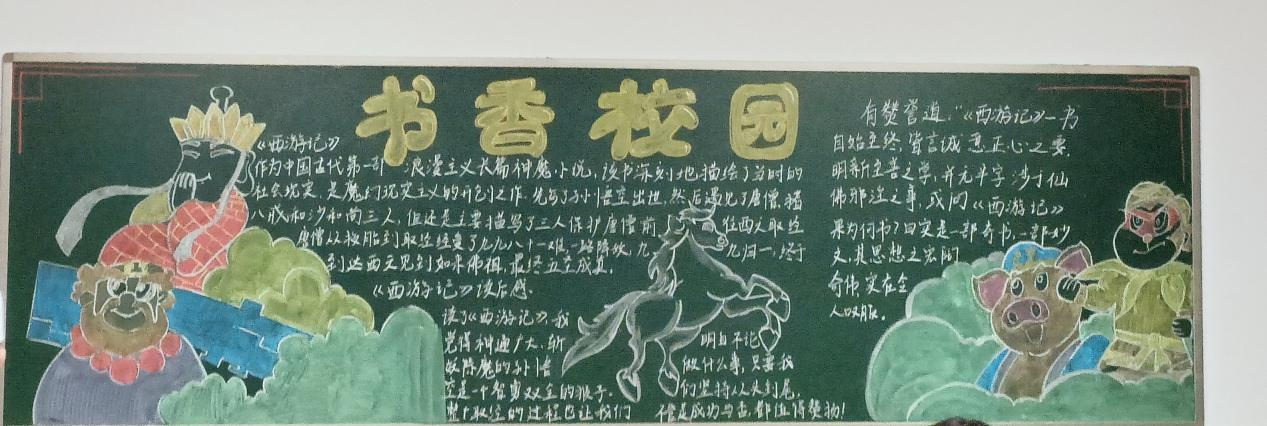 书香校园
《西游记》
作为中国古代第一部 浪漫主义长篇神魔小说，该书深刻地描绘了当时的
社会现实，是魔幻现实主义的开创之作。先写了孙悟空出世，然后遇见了唐僧、猪
八戒和沙和尚三人，但还是主要描写了三人保护唐僧前 往西天取经
唐僧从投胎到取经经受了九九八十一难，一路降妖，九 九归一，终于
到达西天见到如来佛祖，最终五圣成真。
《西游记》读后感
读了《西游记》，我
觉得神通广大，斩
妖除魔的孙悟
空是一个智勇双全的猴子。
整个取经的过程也让我们
明白不论
做什么事，只要我
们坚持从头到尾，
僅是成功与否，都值得赞扬！
有赞誉道：“《西游记》一书
自始至终，皆言诚意正心之要，
明新至善之学，并无半字涉于仙
佛邪淫之事，或问《西游记》
果为何书？曰实是一部奇书，一部妙
文，其思想之宏阔
奇伟，实在令
人叹服。